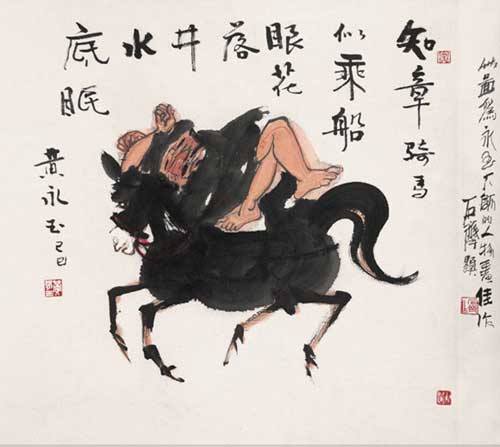 知章骑马
似乘船
眼花
落
井
水
底眠
黄永玉己巳
此畫為永玉大師的人物畫佳作
石齊題